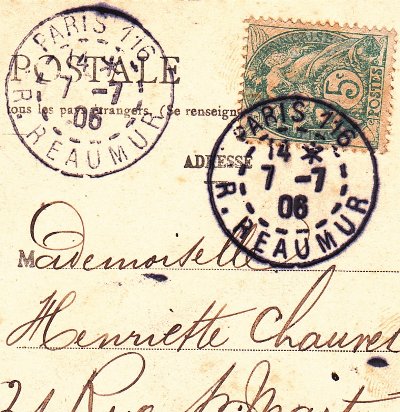 PARIS 116
14 *
7 -7
06
R. REAUMUR
POSTALE
tous les pays étrangers. (Se renseign
5c
POSTES
PARIS 116
14 *
7 -7
06
R. REAUMUR
ADRESSE
Mademoiselle
Henriette Chauvet
21 Rue